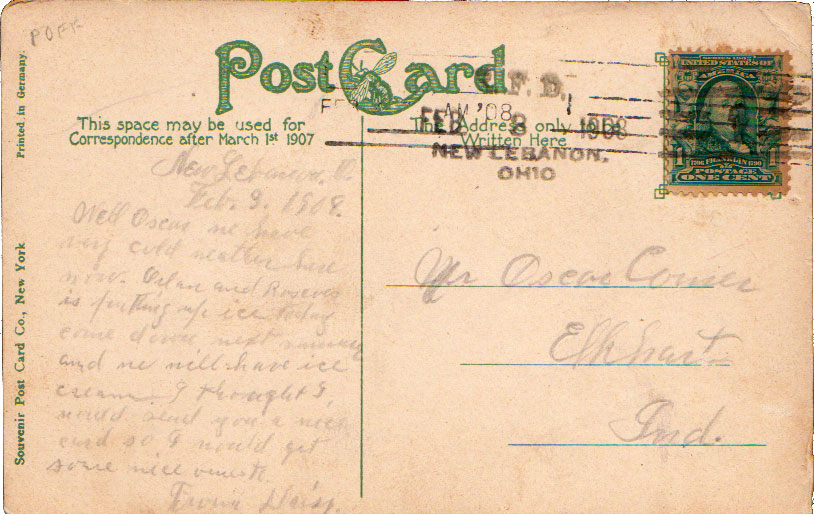 POEK
Printed in Germany.
Souvenir Post Card Co., New York
Post Card
This space may be used for
Correspondence after March 1st 1907
The Address only
Written Here
R.F.D.
FEB
AM '08
FEB 8 1908
NEW LEBANON,
OHIO
UNITED STATES OF
AMERICA
FRANKLIN
POSTAGE
ONE CENT
New Lebanon, O.
Feb. 9. 1908.
Well Oscar we have
very cold weather here
now. and
is putting up ice today
come down next
and we will have ice
cream. I thought I
would send you a nice
card so I would get
some nice
From Daisy.
Mr Oscar
Elkhart
Ind.